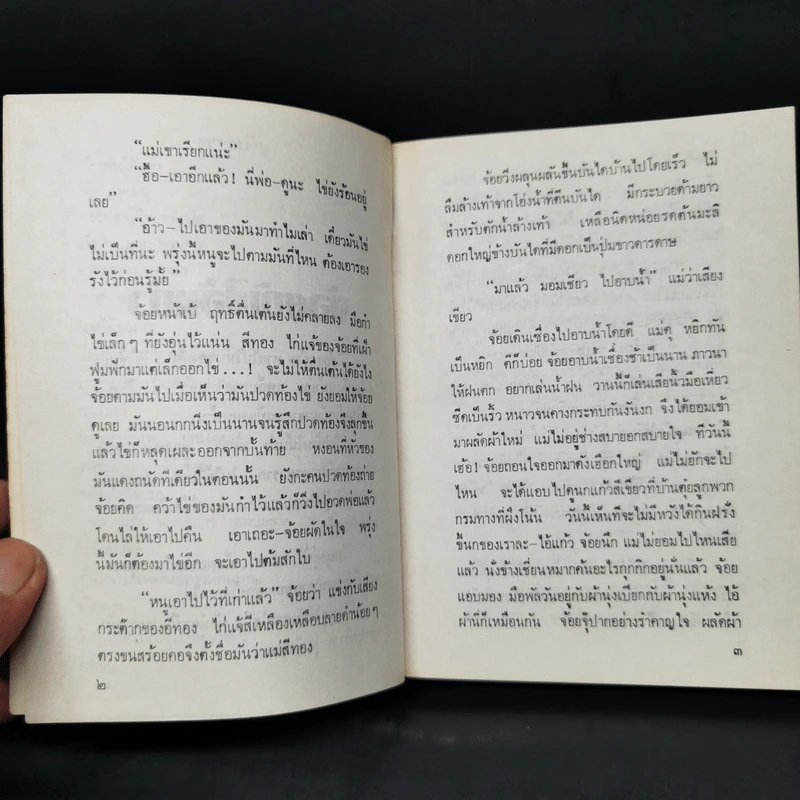 “แม่เขาเรียกแน่ะ”
“ฮื้อ-เอาอีกแล้ว! นี่พ่อ-ดูนะ ไข่ยังร้อนอยู่
เลย”
“อ้าว-ไปเอาของมันมาทำไมเล่า เดี๋ยวมันไข่
ไม่เป็นที่นะ พรุ่งนี้หนูจะไปตามมันที่ไหน ต้องเอารอง
รังไว้ก่อนรู้มั้ย”
จ้อยหน้าเบ้ ฤทธิ์ตื่นเต้นยังไม่คลายลง มือกำ
ไข่เล็กๆ ที่ยังอุ่นไว้แน่น สีทอง ไก่แจ้ของจ้อยที่เฝ้า
ฟูมฟักมาแต่เล็กออกไข่...! จะไม่ให้ตื่นเต้นได้ยังไง
จ้อยตามมันไปเมื่อเห็นว่ามันปวดท้องไข่ ยังยอมให้จ้อย
ดูเลย มันนอนกกนิ่งเป็นนานจนรู้สึกปวดท้องจึงลุกขึ้น
แล้วไข่ก็หลุดเผละออกจากบั้นท้าย หงอนที่หัวของ
มันแดงถนัดทีเดียวในตอนนั้น ยังกะคนปวดท้องถ่าย
จ้อยคิด คว้าไข่ของมันกำไว้แล้วก็วิ่งไปอวดพ่อแล้ว
โดนไล่ให้เอาไปคืน เอาเถอะ-จ้อยผัดในใจ พรุ่ง
นี้มันก็ต้องมาไข่อีก จะเอาไปต้มสักใบ
“หนูเอาไปไว้ที่เก่าแล้ว” จ้อยว่า แข่งกับเสียง
กระต๊ากของอีทอง ไก่แจ้สีเหลืองเหลือบลายดำน้อยๆ
ตรงขนสร้อยคอจึงตั้งชื่อมันว่าแม่สีทอง
๒
จ้อยวิ่งผลุนผลันขึ้นบันไดบ้านไปโดยเร็ว ไม่
ลืมล้างเท้าจากโอ่งน้ำที่ตีนบันได มีกระบวยด้ามยาว
สำหรับตักน้ำล้างเท้า เหลือนิดหน่อยรดต้นมะลิ
ดอกใหญ่ข้างบันไดที่มีดอกเป็นปุ่มขาวดารดาษ
“มาแล้ว มอมเชียว ไปอาบน้ำ” แม่ว่าเสียง
เขียว
จ้อยเดินเซื่องไปอาบน้ำโดยดี แม่ดุ หยิกทัน
เป็นหยิก ตีก็บ่อย จ้อยอาบน้ำเซื่องช้าเป็นนาน ภาวนา
ให้ฝนตก อยากเล่นน้ำฝน วานนี้ก็เล่นเสียนิ้วมือเหี่ยว
ซีดเป็นริ้ว หนาวจนคางกระทบกันงันงก จึงได้ยอมเข้า
มาผลัดผ้าใหม่ แม่ไม่อยู่ช่างสบายอกสบายใจ ทีวันนี้
เฮ้อ! จ้อยถอนใจออกมาดังเฮือกใหญ่ แม่ไม่ยักจะไป
ไหน จะได้แอบไปดูนกแก้วสีเขียวที่บ้านตุ๋ยลูกพวก
กรมทางที่ฝั่งโน้น วันนี้เห็นทีจะไม่มีหวังได้กินฝรั่ง
ขี้นกของเราละ-ไอ้แก้ว จ้อยนึก แม่ไม่ยอมไปไหนเสีย
แล้ว นั่งข้างเชี่ยนหมากค้นอะไรกุกกิกอยู่นั่นแล้ว จ้อย
แอบมอง มือพัลวันอยู่กับผ้านุ่งเปียกกับผ้านุ่งแห้ง ไอ้
ผ้านี่ก็เหมือนกัน จ้อยจุ๊ปากอย่างรำคาญใจ ผลัดผ้า
๓